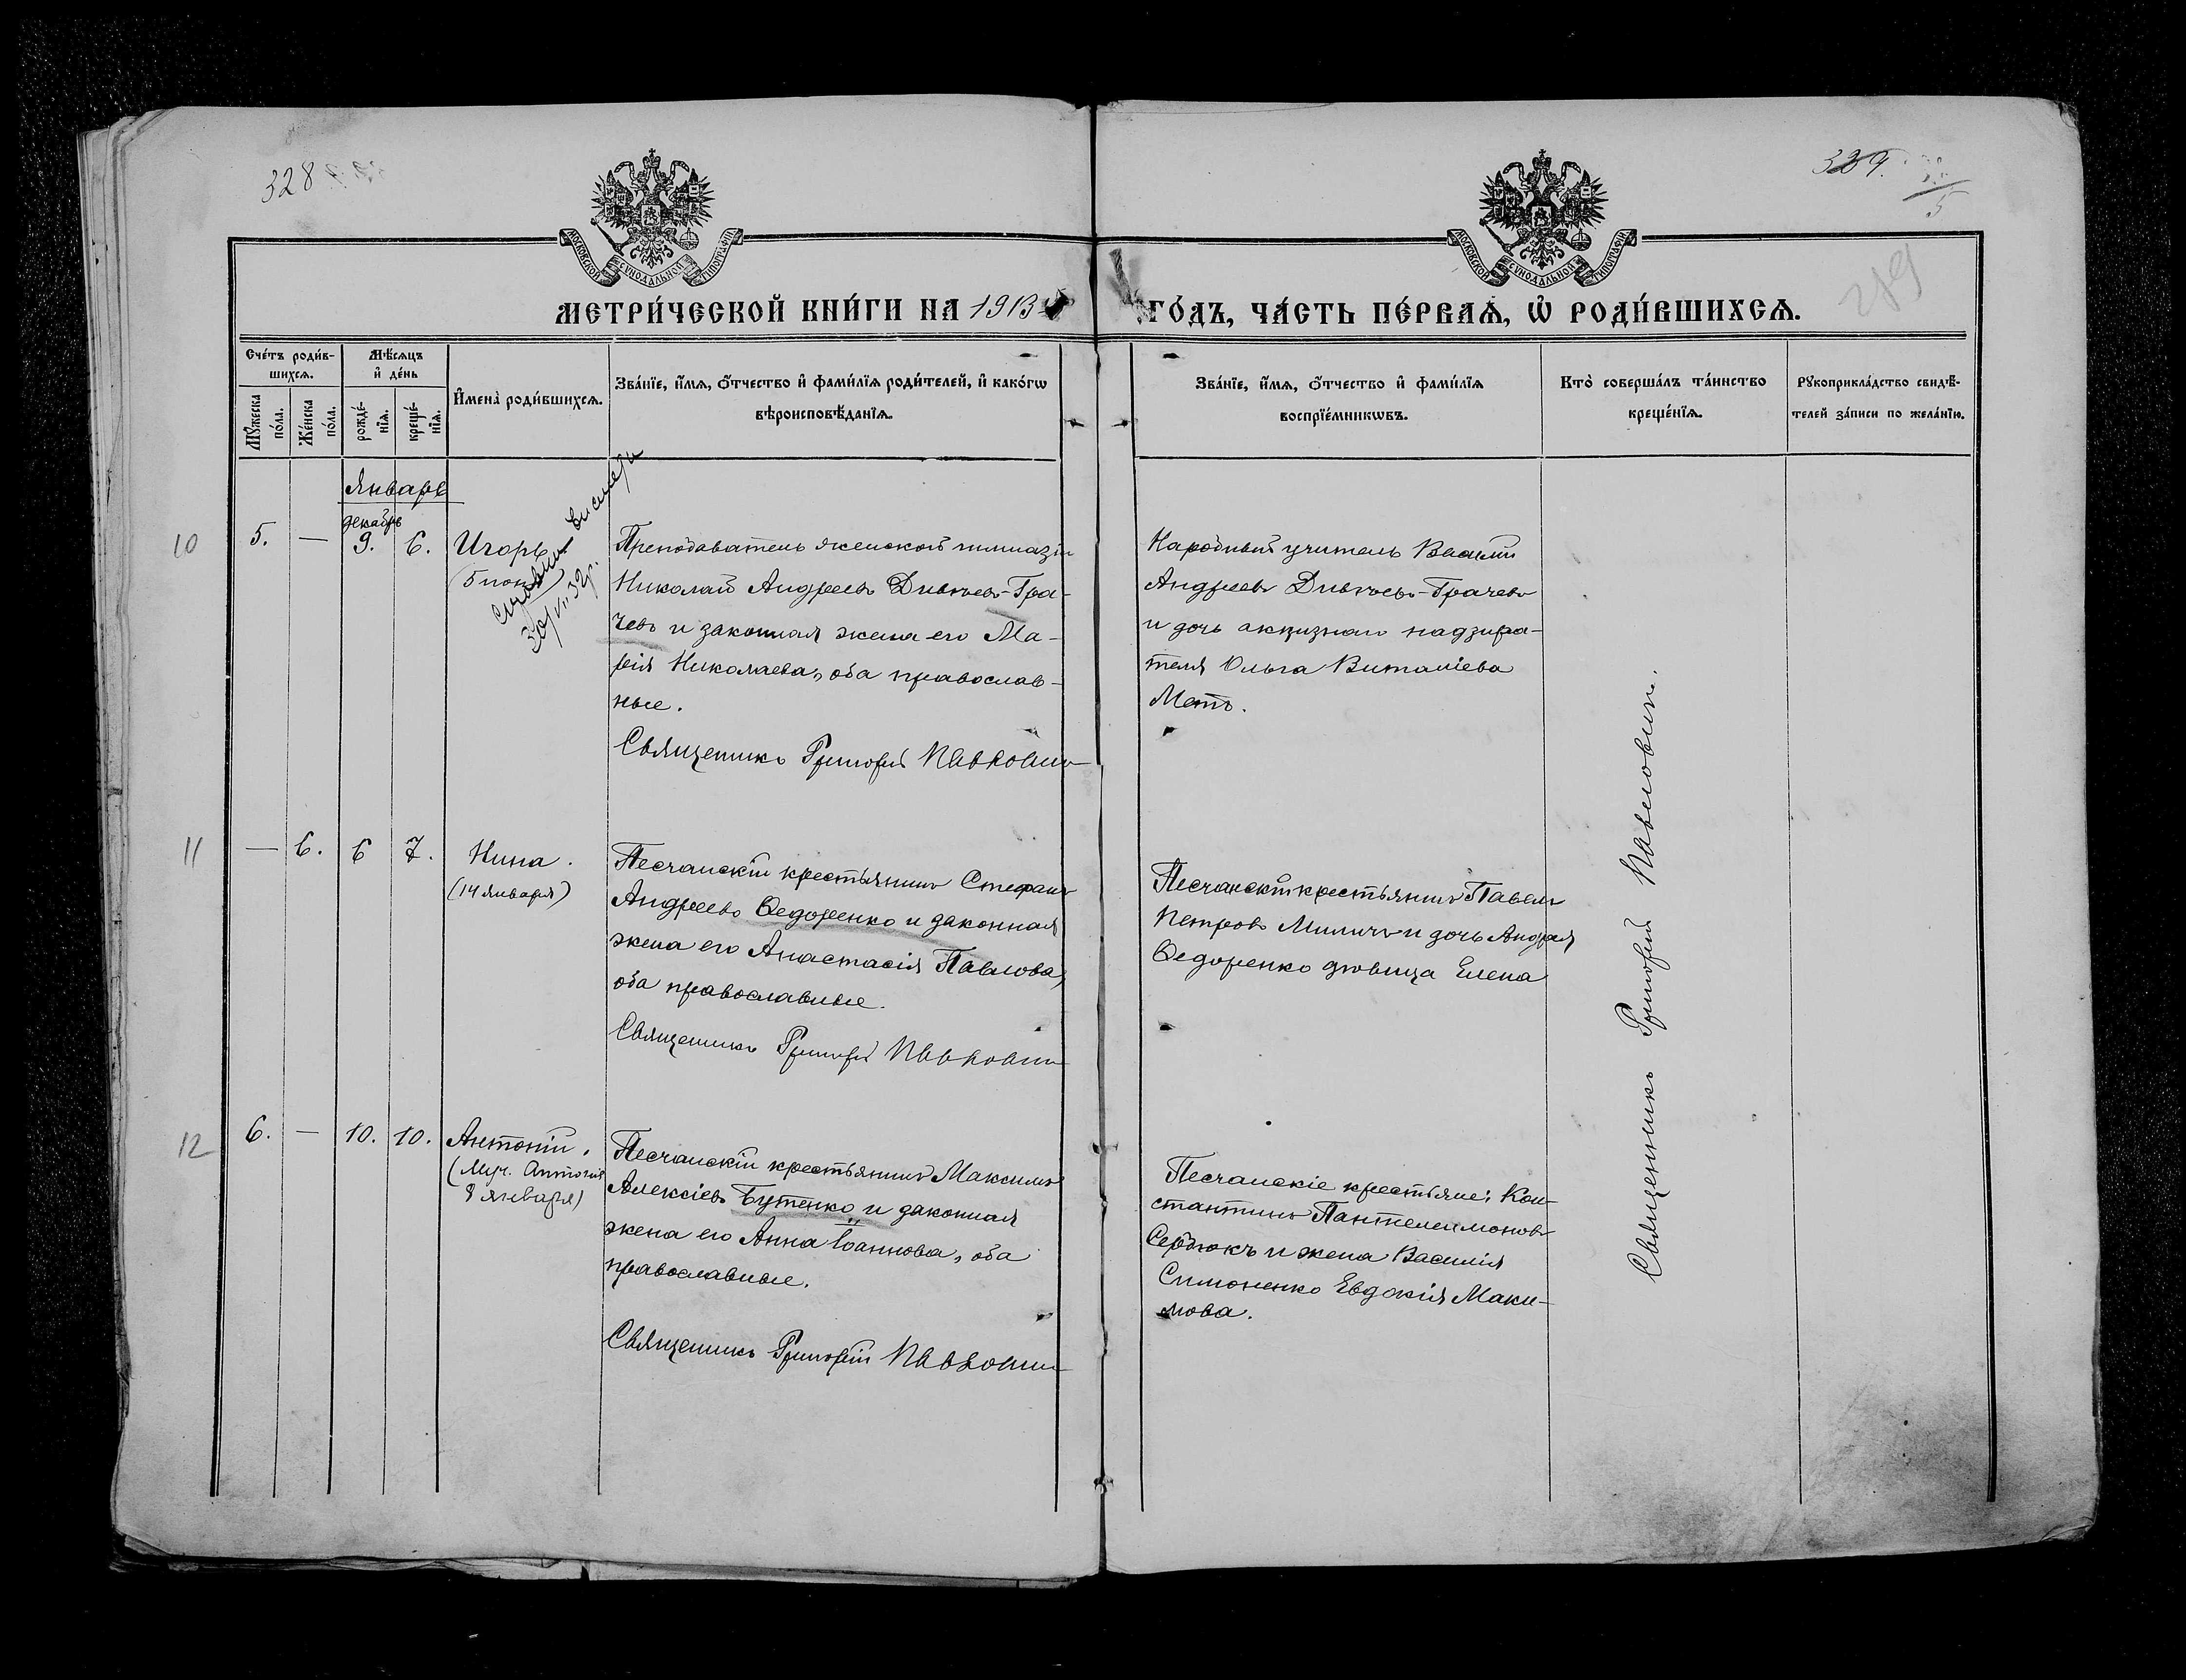 328
329.
5
289
МОСКОВСКОЙ СУНОДАЛЬНОЙ ТИПОГРАФІИ
МОСКОВСКОЙ СУНОДАЛЬНОЙ ТИПОГРАФІИ
МЕТРИ́ЧЕСКОЙ КНИ́ГИ НА 1913
ГО́ДЪ, ЧА́СТЬ ПЕ́РВАѦ, Ѽ РОДИ́ВШИХСѦ.
Сче́тъ роди́в-
шихсѧ.
Мꙋ́жеска
по́ла.
Же́нска
по́ла.
Мѣ́сѧцъ
и҆ де́нь
рожде́-
нїѧ.
креще́-
нїѧ.
И҆мена̀ роди́вшихсѧ.
Зва́нїе, и҆́мѧ, ѻ҆́тчество и҆ фами́лїѧ роди́телей, и҆ како́гѡ
вѣроисповѣ́данїѧ.
Зва́нїе, и҆́мѧ, ѻ҆́тчество и҆ фами́лїѧ
воспрїе́мникѡвъ.
Кто̀ соверша́лъ та́инство
креще́нїѧ.
Рꙋкоприкла́дство свидѣ́-
телей за́писи по жела́нїю.
Январь
декабрь
10
5.
—
9.
6.
Игорь
(5 іюня)
Преподаватель женской гимназіи
Николай Андреевъ Дивногь-Гра-
чевъ и законная жена его Ма-
рія Николаева, оба православ-
ные.
Священникъ Григорій Павловичъ
Народный учитель Василій
Андреевъ Дивногь-Грачевъ
и дочь акцизнаго надзира-
теля Ольга Виталіева
Метъ.
11
—
6.
6
7.
Нина.
(14 января)
Песчанскій крестьянинъ Стефанъ
Андреевъ Ѳедоренко и законная
жена его Анастасія Павлова,
оба православные.
Священникъ Григорій Павловичъ
Песчанскій крестьянинъ Павелъ
Петровъ Миличъ и дочь Андрея
Ѳедоренко дѣвица Елена
12
6.
—
10.
10.
Антоній.
(Муч. Антонія
8 января)
Песчанскій крестьянинъ Максимъ
Алексіевъ Бутенко и законная
жена его Анна Іоаннова, оба
православные.
Священникъ Григорій Павловичъ
Песчанскіе крестьяне: Кон-
стантинъ Пантелеимоновъ
Сердюкъ и жена Василія
Симоненко Евдокія Макси-
мова.
Священникъ Григорій Павловичъ.